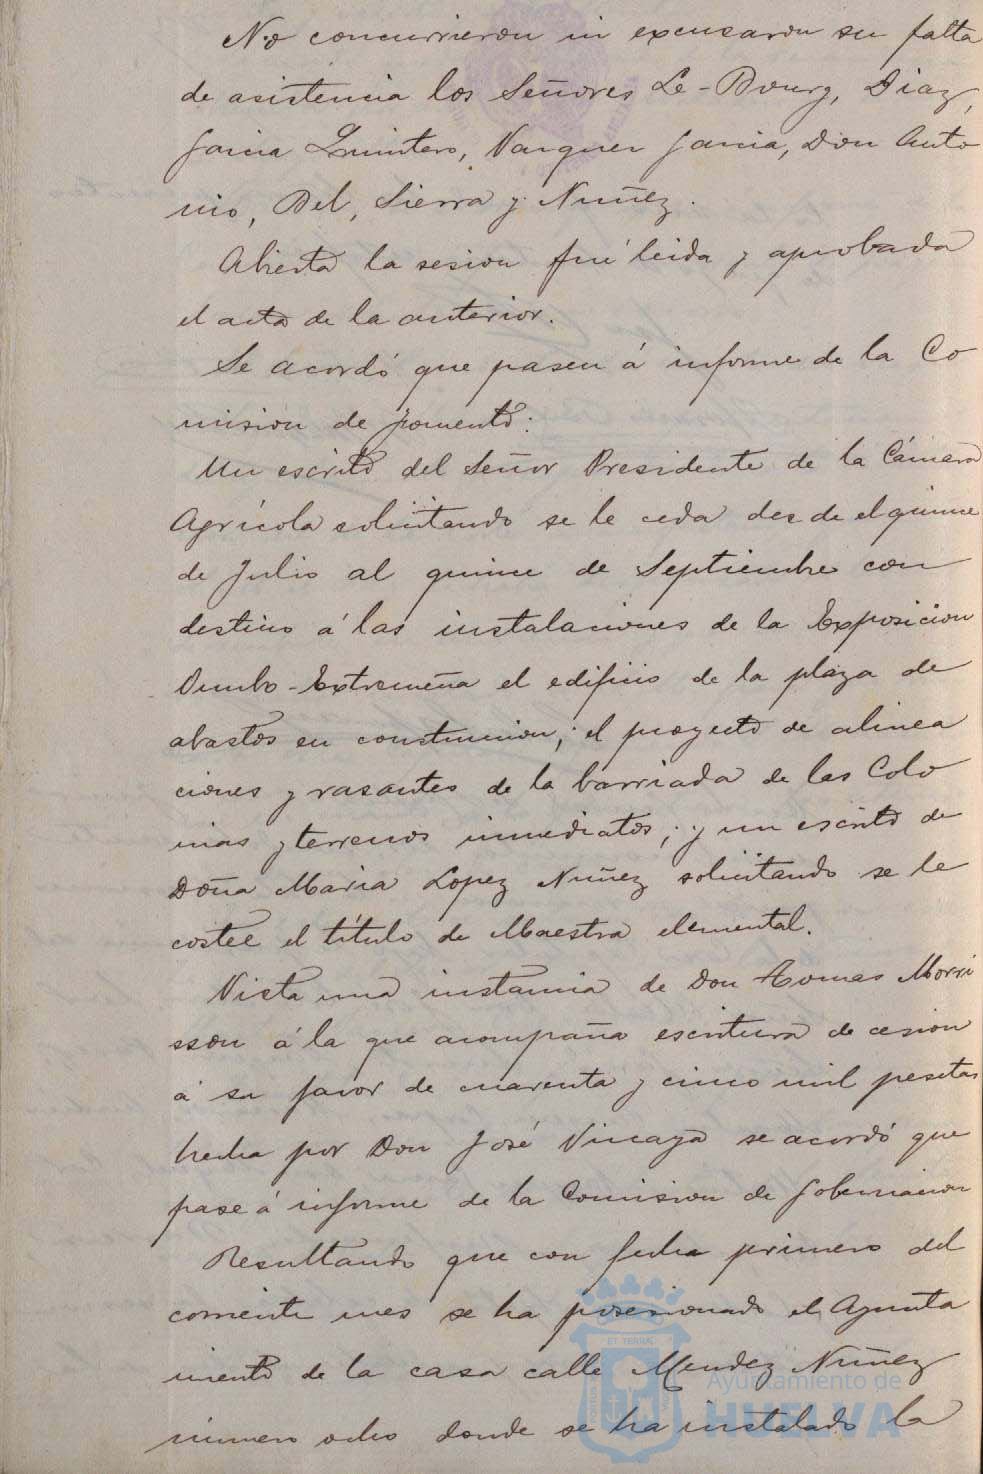 No concurrieron ni excusaron su falta
de asistencia los Señores Le-Bourg, Diaz,
Garcia Quintero, Vazquez Garcia, Don Anto
nio, Del, Sierra y Nuñez.
Abierta la sesion fué leida y aprobada
el acta de la anterior.
Se acordó que pasen á informe de la Co
mision de fomento:
Un escrito del Señor Presidente de la Cámara
Agrícola solicitando se le ceda desde el quince
de Julio al quince de Septiembre con
destino á las instalaciones de la Exposicion
Onubo-Extremeña el edificio de la plaza de
abastos en construccion; el proyecto de alinea
ciones y rasantes de la barriada de las Colo
nias y terrenos inmediatos; y un escrito de
Doña Maria Lopez Nuñez solicitando se le
costee el título de Maestra elemental.
Vista una instancia de Don Tomas Morri
sson á la que acompaña escritura de cesion
á su favor de cuarenta y cinco mil pesetas
hecha por Don José Vizcaya se acordó que
pase á informe de la Comision de Gobernacion
Resultando que con fecha primero del
corriente mes se ha posesionado el Ayunta
miento de la casa calle Mendez Nuñez
número ocho donde se ha instalado la
ET TERRAE
Ayuntamiento de
HUELVA